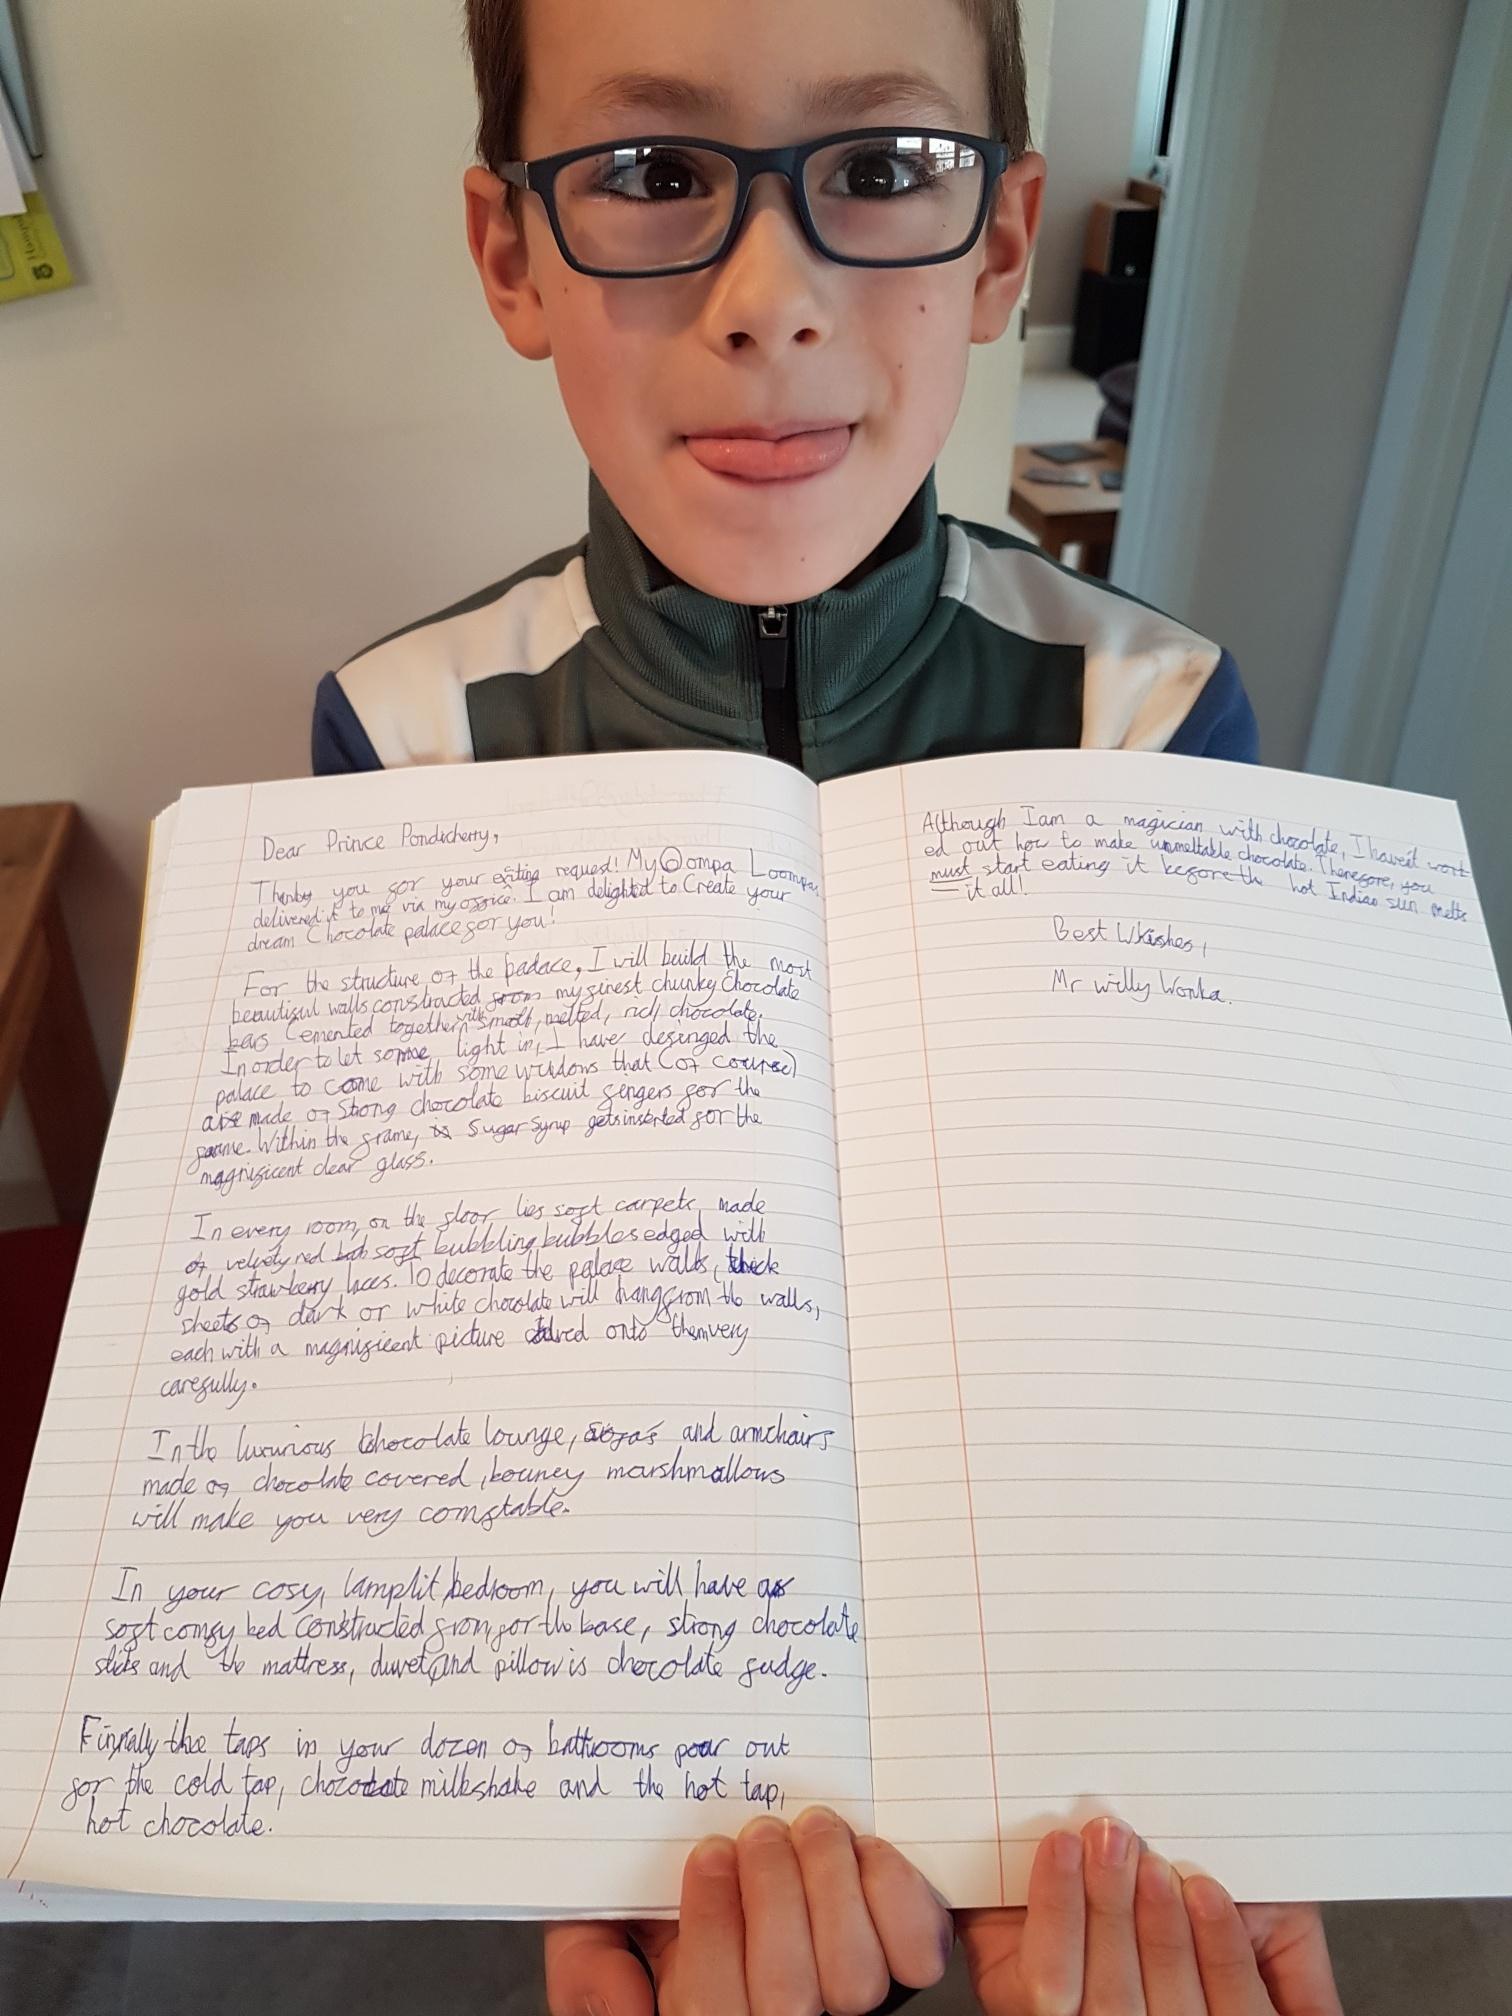 Dear Prince Pondicherry,
Thankyou you for your exiting request! My Oompa Loompas
delivered it to me via my office. I am delighted to Create your
dream Chocolate palace for you!
For the structure of the palace, I will build the most
beautiful walls constracted from my finest chunky Chocolate
bars Cemented together with smooth, melted, rich chocolate.
In order to let some light in, I have desinged the
palace to come with some windows that (of course)
are made of Strong chocolate biscuit fingers for the
frame. Within the frame, Sugar Syrup gets inserted for the
magnificent clear glass.
In every room, on the floor lies soft carpets made
of velvety red soft bubbling bubbles edged with
gold strawberry laces. To decorate the palace walls, thick
sheets of dark or white chocolate will hang from the walls,
each with a magnificent picture onto them very
carefully.
In the luxurious Chocolate lounge, sofa's and armchairs
made of chocolate covered, bouncy marshmallows
will make you very comftable.
In your cosy, lamplit bedroom, you will have a
soft comfy bed Constructed from, for the base, strong chocolate
sticks and the mattress, duvet and pillow is chocolate fudge.
Finally the taps in your dozen of bathrooms pour out
for the cold tap, chocolate milkshake and the hot tap,
hot chocolate.
Although I am a magician with chocolate, I haven't work-
ed out how to make unmeltable chocolate. Therefore, you
must start eating it before the hot Indian sun melts
it all!
Best Wishes,
Mr Willy Wonka.